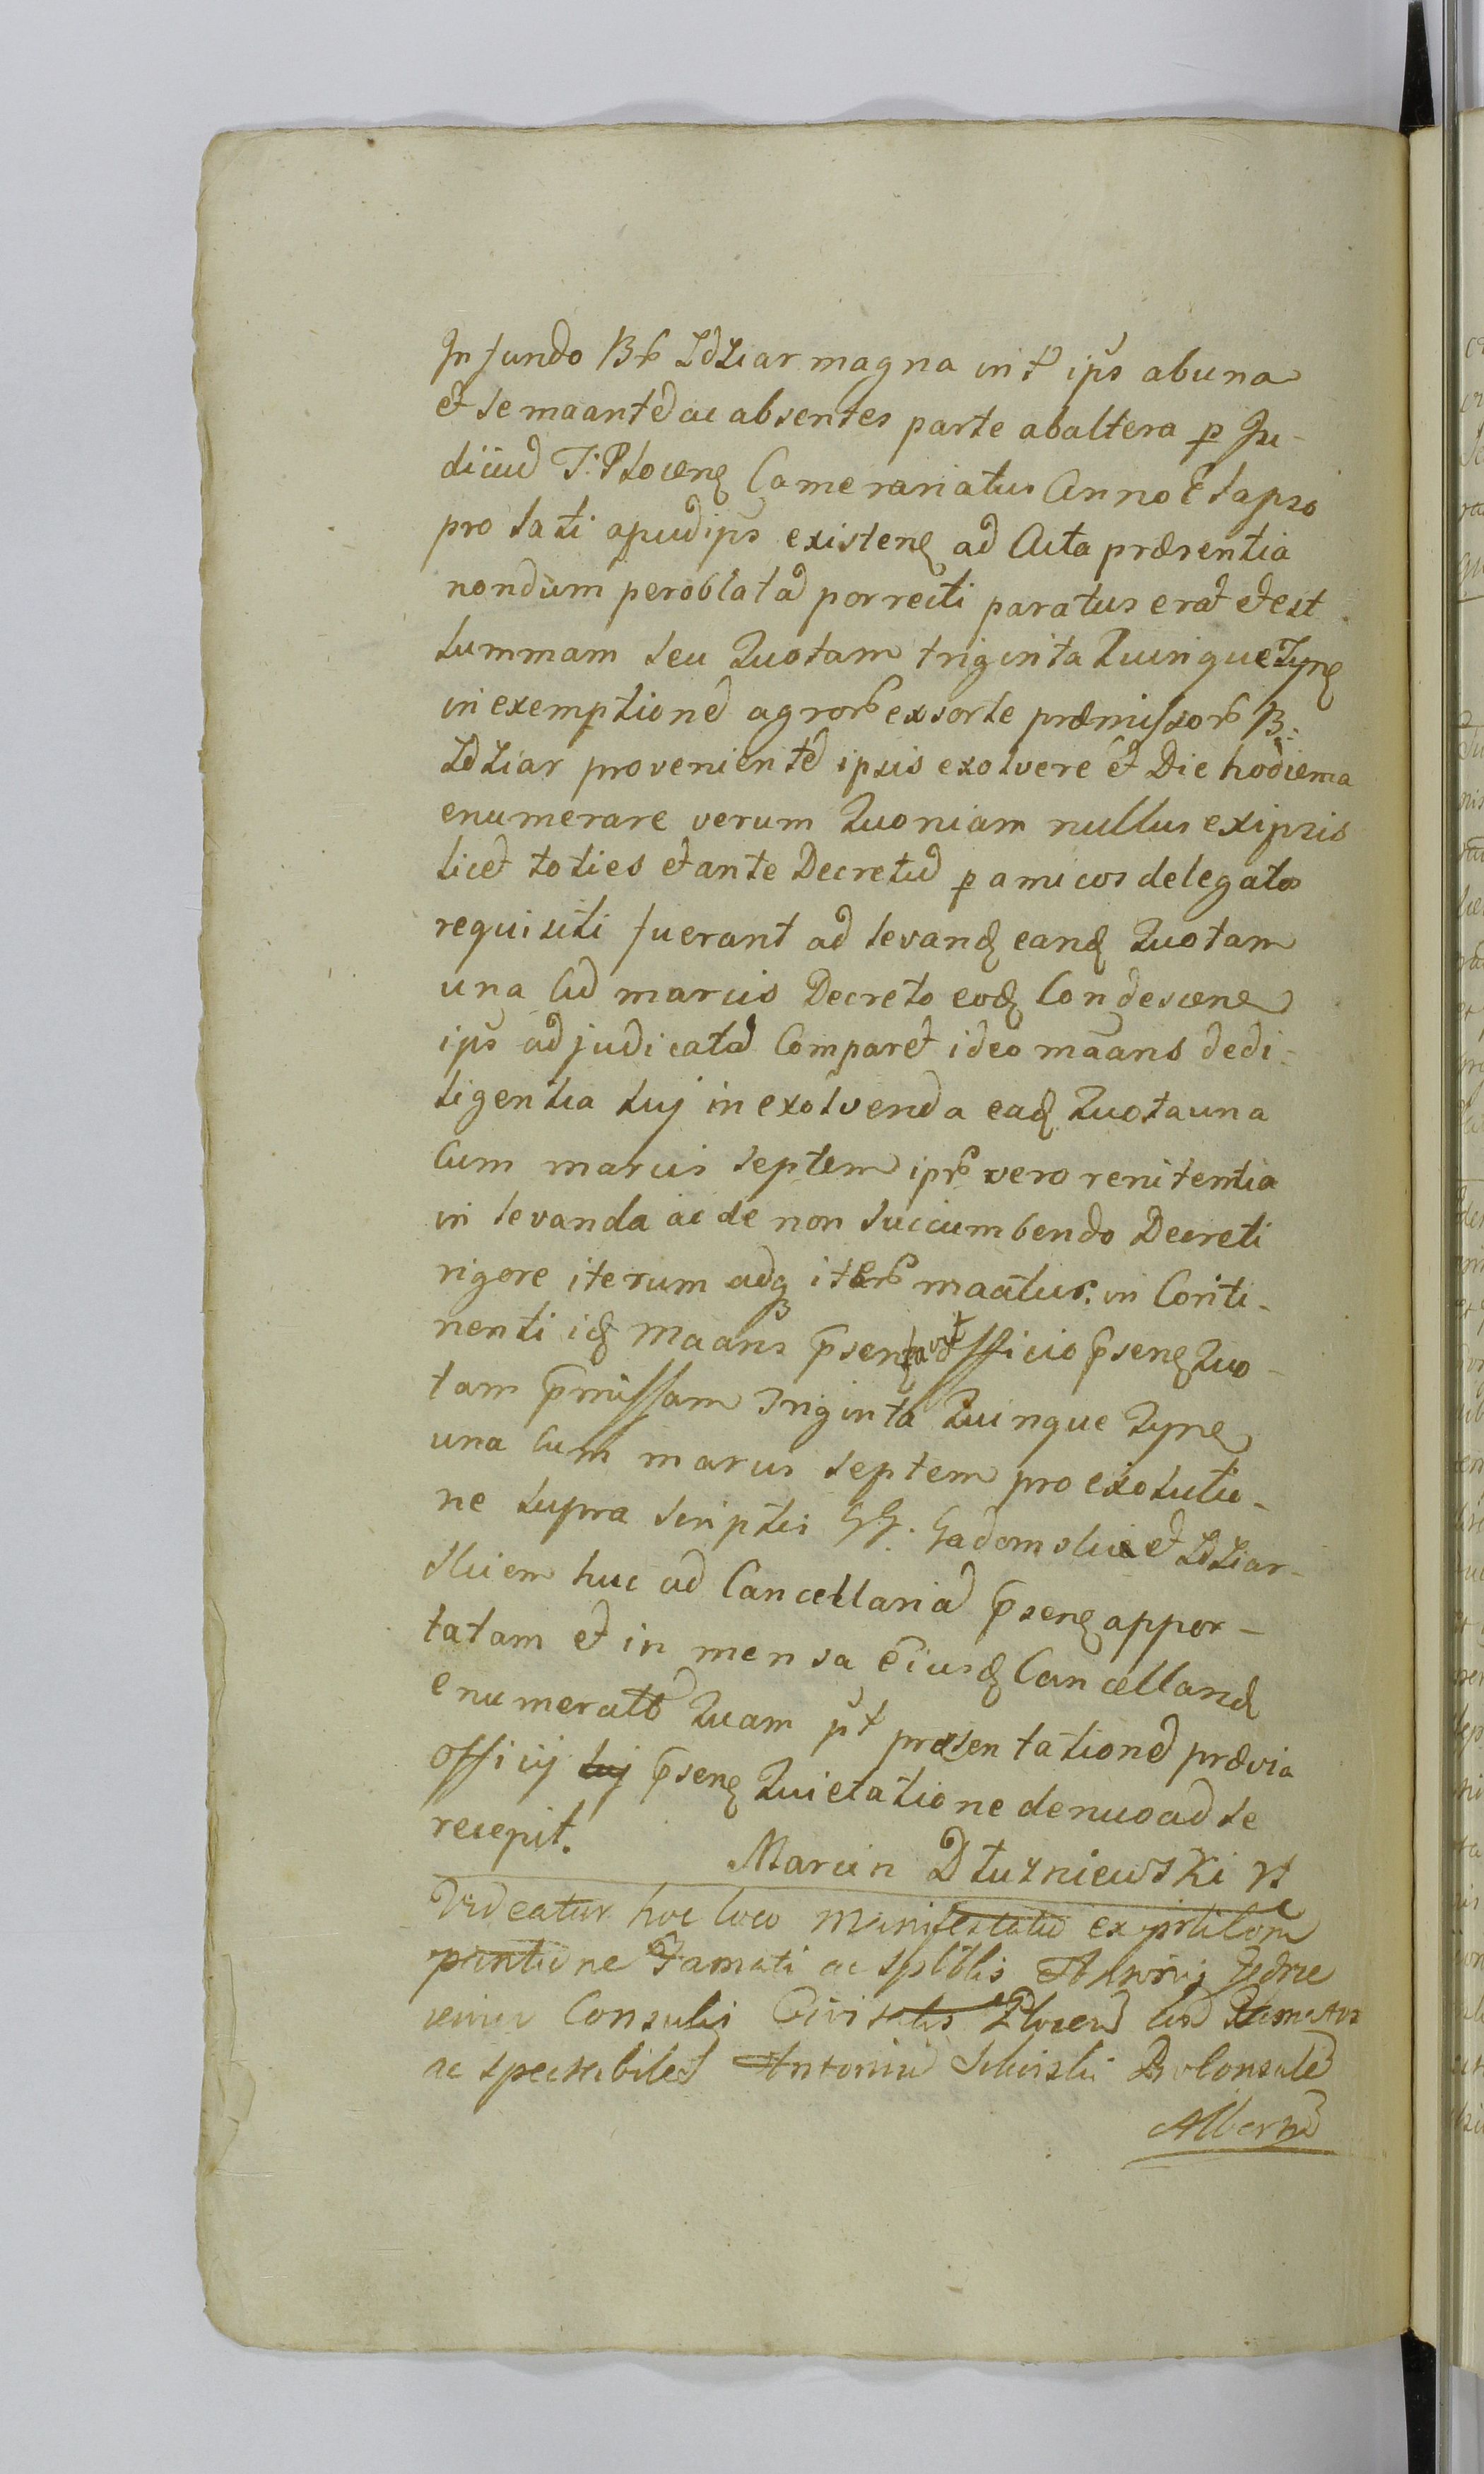 In fundo B́r Zdziar magna int ips ab una
et se maantẽ ac absentes parte ab altera p Ju-
diciũ T: Plocen Camerariatus Anno Elapso
pro lati apud ips existen ad Acta præsentia
nondum per oblatã porrecti paratus erat et est
summam seu Quotam triginta Quinque Tyn
in exemptionẽ agror ex sorte præmissor B:
Zdziar provenientẽ ipsis exolvere et Die hodierna
enumerare verum Quoniam nullus ex ipsis
licet toties et ante Decretũ p amicos delegatos
requisiti fuerant ad levand eand Quotam
una Cũ marcis Decreto eod Condescen
ips adjudicatã Comparet ideo maans de di-
ligentia sui in exolvenda ead Quota una
Cum marcis septem ipr vero renitentia
in levanda ac de non succumbendo Decreti
rigore iterum adq iter maatur. in Conti-
nenti id Maans psentavit officio psen Quo-
tam pmissam Triginta Quinque Tyn
una cum marcis septem pro exolutio-
ne supra scriptis GG. Gadomskie et Zdziar-
skiem huc ad Cancellariã psen appor-
tatam et in mensa eiusd Cancellari
enumeratã Quam pt præsentationẽ prævia
officij suj psen Quietatione denuo ad se
recepit.
Marcin Dłuzniewski
Videatur hoc loco Manifestatio ex
Famati ac Spltblis
Consulis Civitatis Plocen cũ
ac spectabilẽ Antoniũ ProConsulẽ